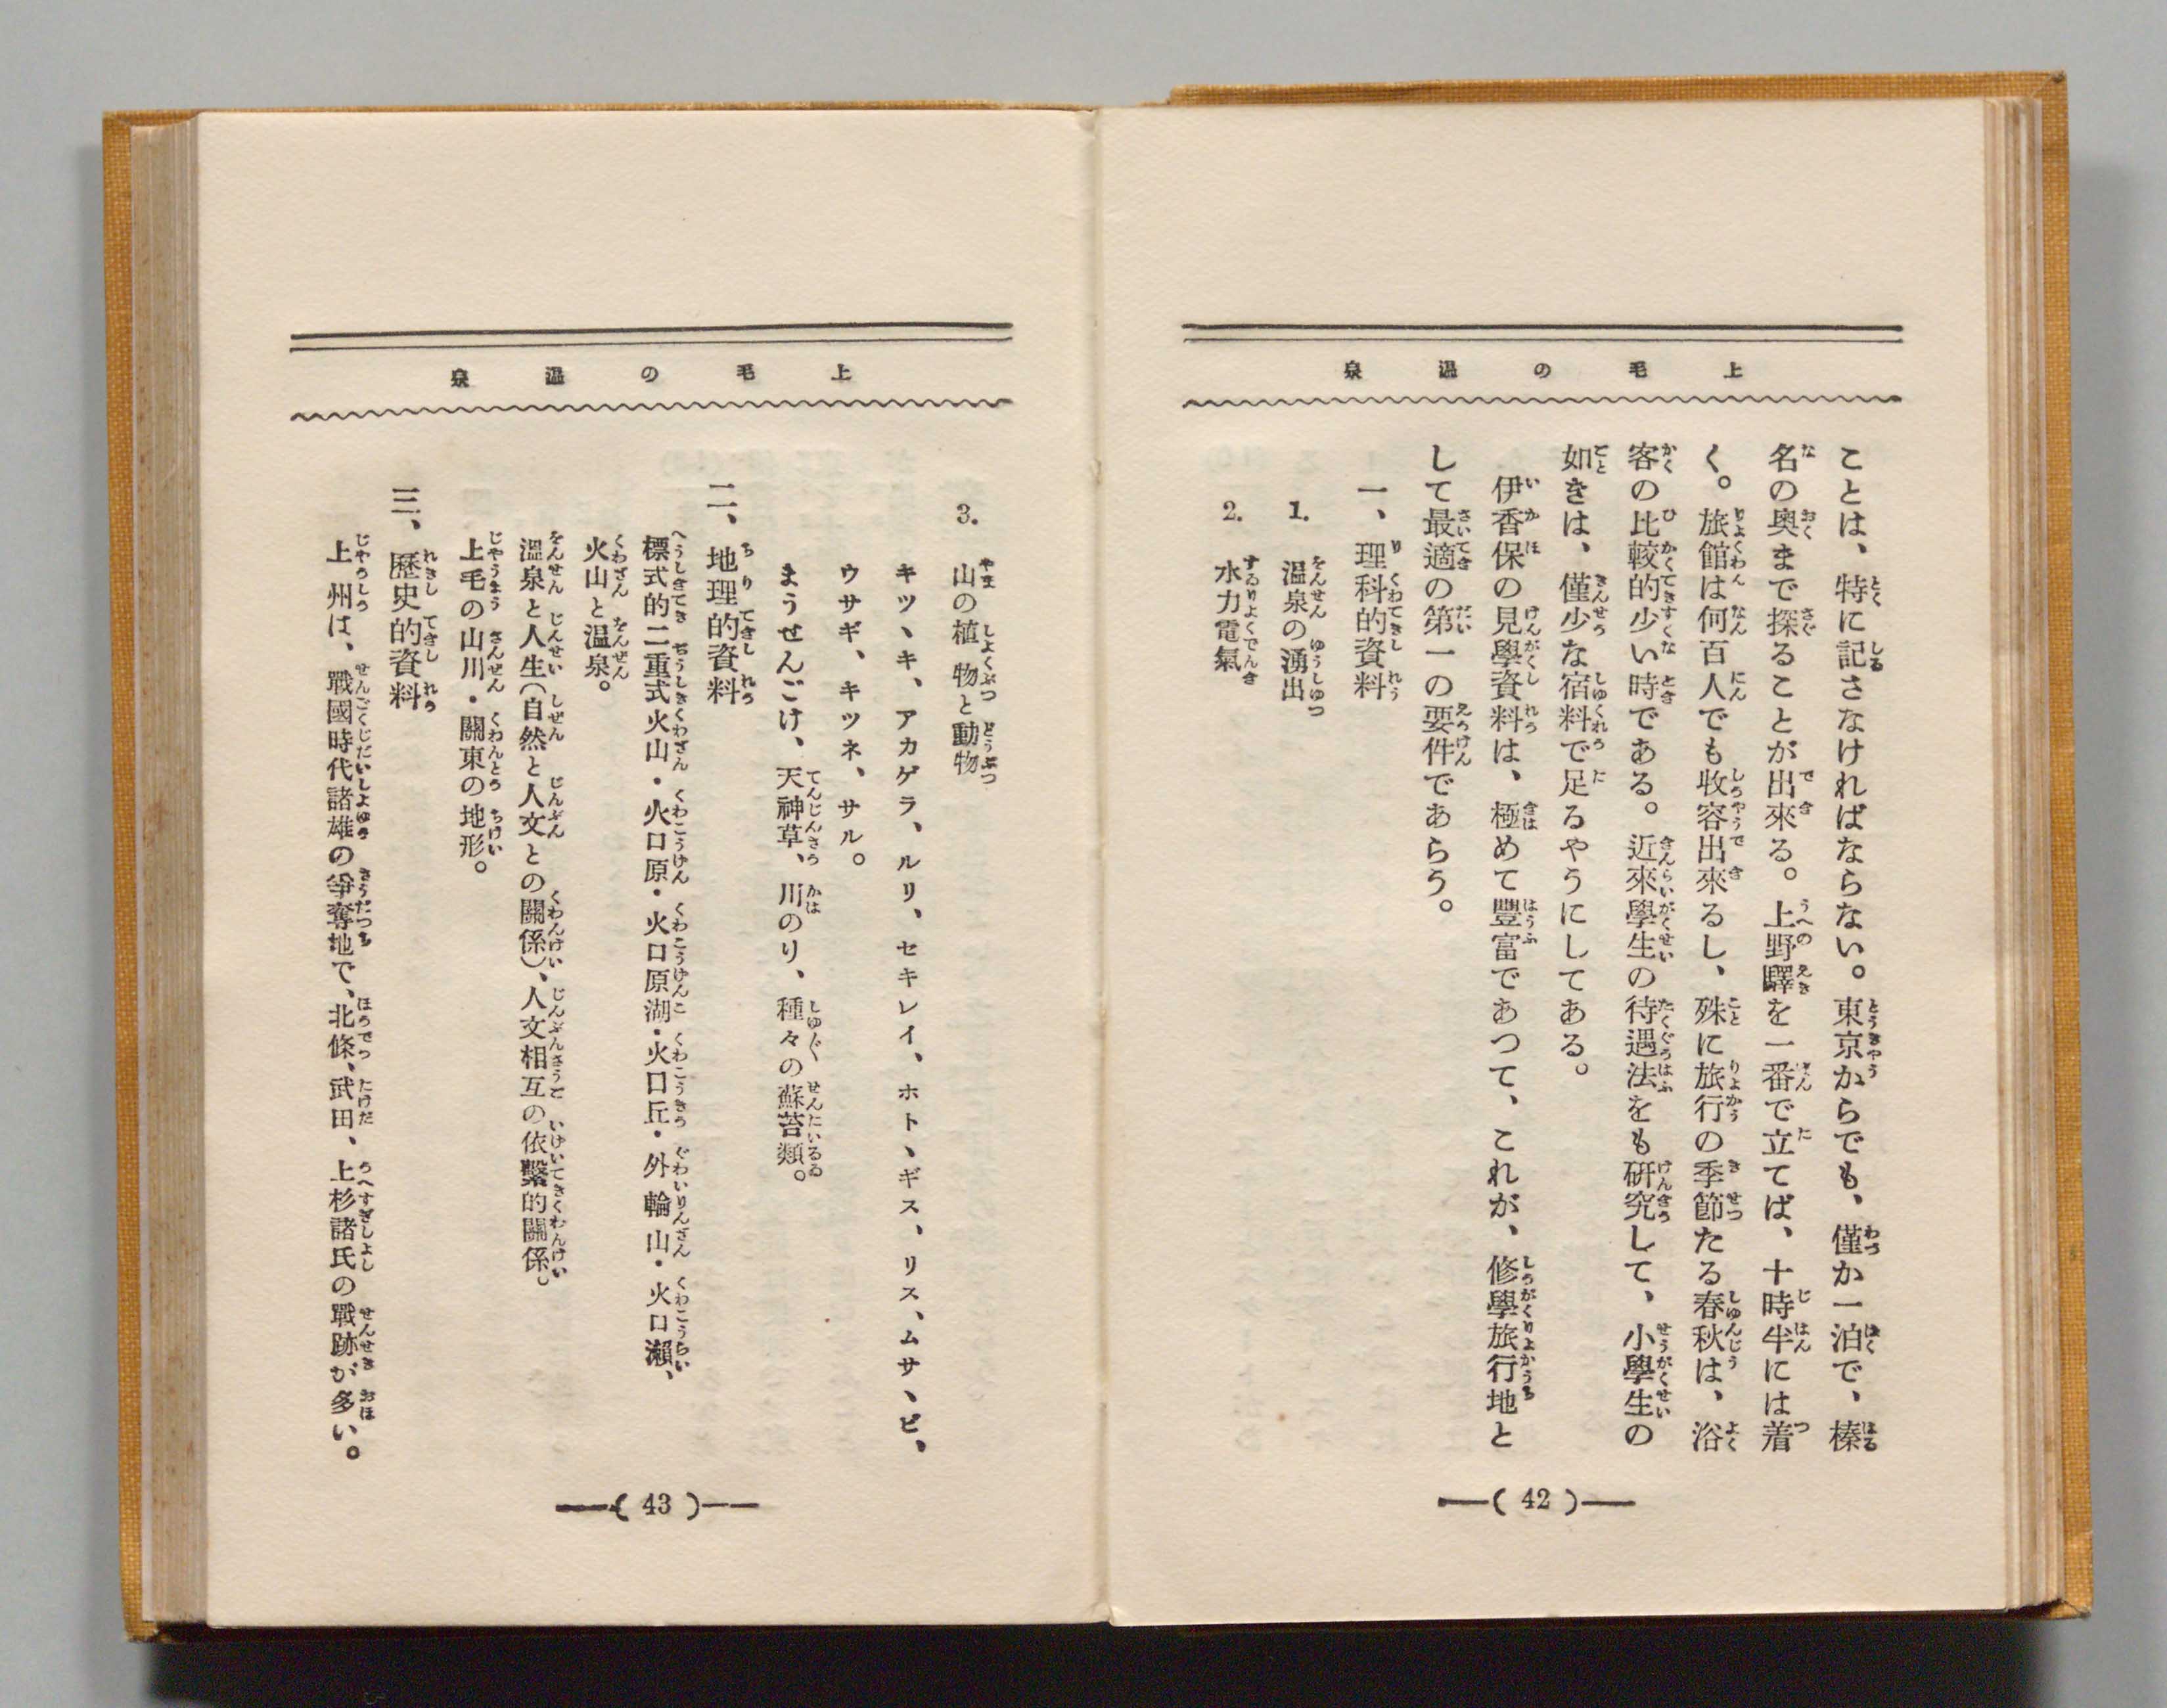 上毛の温泉
ことは、特に記さなければならない。東京からでも、僅か一泊で、榛
名の奥まで探ることが出來る。上野驛を一番で立てば、十時半には着
く。旅館は何百人でも收容出來るし、殊に旅行の季節たる春秋は、浴
客の比較的少い時である。近來學生の待遇法をも研究して、小學生の
如きは、僅少な宿料で足るやうにしてある。
伊香保の見學資料は、極めて豐富であつて、これが、修學旅行地と
して最適の第一の要件であらう。
一、理科的資料
1. 溫泉の湧出
2. 水力電氣
―( 42 )―
上毛の温泉
3. 山の植物と動物
キツヽキ、アカゲラ、ルリ、セキレイ、ホトヽギス、リス、ムサヽビ、
ウサギ、キツネ、サル。
まうせんごけ、天神草、川のり、種々の蘇苔類。
二、地理的資料
標式的二重式火山・火口原・火口原湖・火口丘・外輪山・火口瀨、
火山と温泉。
溫泉と人生(自然と人文との關係)、人文相互の依繫的關係。
上毛の山川・關東の地形。
三、歷史的資料
上州は、戰國時代諸雄の爭奪地で、北條、武田、上杉諸氏の戰跡が多い。
―( 43 )―